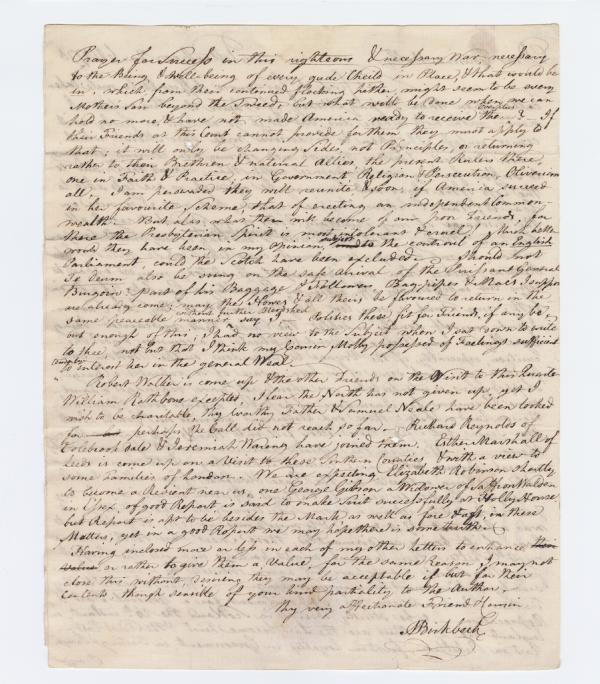 Prayer for Success in this righteous & necessary War, necessary
to the Being & Well-being of every gude Cheild in Place, & that would be
in, which from their continued flocking hither, might seem to be every
Mothers Son beyond the Tweed; but what will be done when we can
hold no more, & have not made America ready to receive the ? If
their Friends at this Court cannot provide for them they must apply to
that; it will only be changing Sides, not Principles, or returning
rather to their Brethren & natural Allies, the present Rulers there,
one in Faith & Practice, in Government Religion & Persecution, Oliverian
all. I am perswaded they will reunite & soon, if America succeed
in her favourite Scheme, that of erecting an independent Common-
wealth. But alas what then will become of our poor Friends, for
there the Presbyterian Spirit is most intolerant & cruel! Much better
would they have been in my Opinion, subject to the controul of an English
Parliament, could the Scotch have been excluded. Should not
Te Deum also be sung on the safe Arrival of the Puissant General
Burgoin? part of his Baggage & Followers, Bagpipes & Macs I suppose
are already come; may the Howes & all theirs be favoured to return in the
same peaceable manner, say I
without further Bloodshed
Politics these fit for Friends, if any be,
but enough of this, I had no view to the Subject when I sat down to write
to thee, not but that I think my Cousin Molly possessed of Feelings sufficient
to interest her in the general Weal.
Robert Walker is come up & the other Friends on the Visit to this Quarter
William Rathbone excepted, I hear the North has not given up, yet I
wish to be charitable, thy worthy Father & Samuel Neale have been looked
for perhaps the Call did not reach so far. Richard Reynolds of
Colebrook Dale & Jeremiah Waring have joined them. Esther Marshall of
Leeds is come up on a Visit to these Southern Counties, & with a view to
some Families of London. We are expecting Elizabeth Robinson shortly
to become a Resident near us, one George Gibson a Widower of Saffron Walden
in Essex, of good Report is said to make Suit successfully at Holly House
but Report is apt to be besides the Mark as well as fore & aft, in these
Matters, yet in a good Report we may hope there is some truth.
Having enclosed more or less in each of my other Letters to enhance their
Value or rather to give them a Value, for the same Reason I may not
close this without, desiring they may be acceptable if but for their
Contents, though sensible of your kind partiality to the Author.
Thy very affectionate Friend & Cousin
Birkbeck